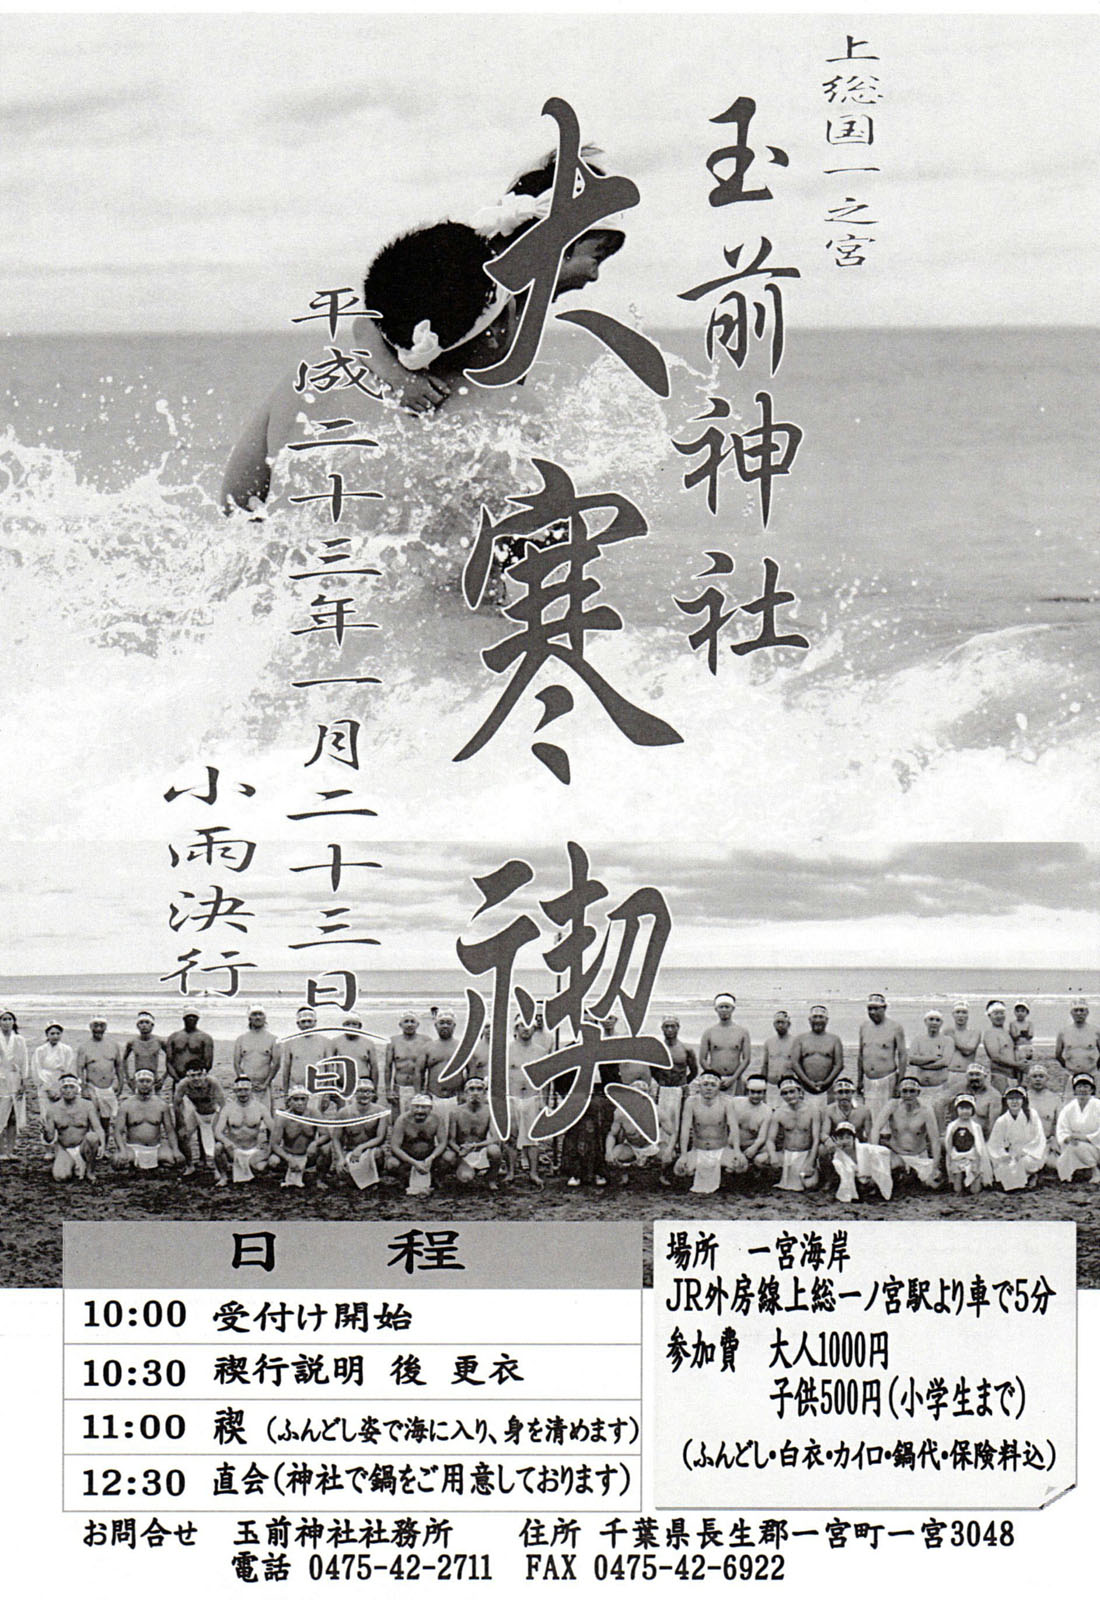 上総国一之宮
玉前神社
大寒禊
平成二十三年一月二十三日(日)
小雨決行
日程
10:00 受付け開始
10:30 禊行説明 後 更衣
11:00 禊 (ふんどし姿で海に入り、身を清めます)
12:30 直会(神社で鍋をご用意しております)
場所 一宮海岸
JR外房線上総一ノ宮駅より車で5分
参加費 大人1000円
子供500円(小学生まで)
(ふんどし・白衣・カイロ・鍋代・保険料込)
お問合せ 玉前神社社務所 住所 千葉県長生郡一宮町一宮3048
電話 0475-42-2711 FAX 0475-42-6922